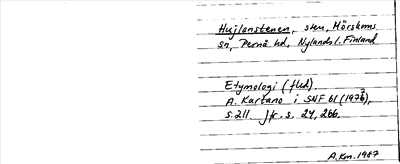 Hujlonstenen, sten, Mörskoms
sn, Pernå hd, Nylands l. Finland
Etymologi (fled).
A. Kartano i SNF 61 (1973),
s. 211 Jfr. s. 24, 266.
A.Km. 1987